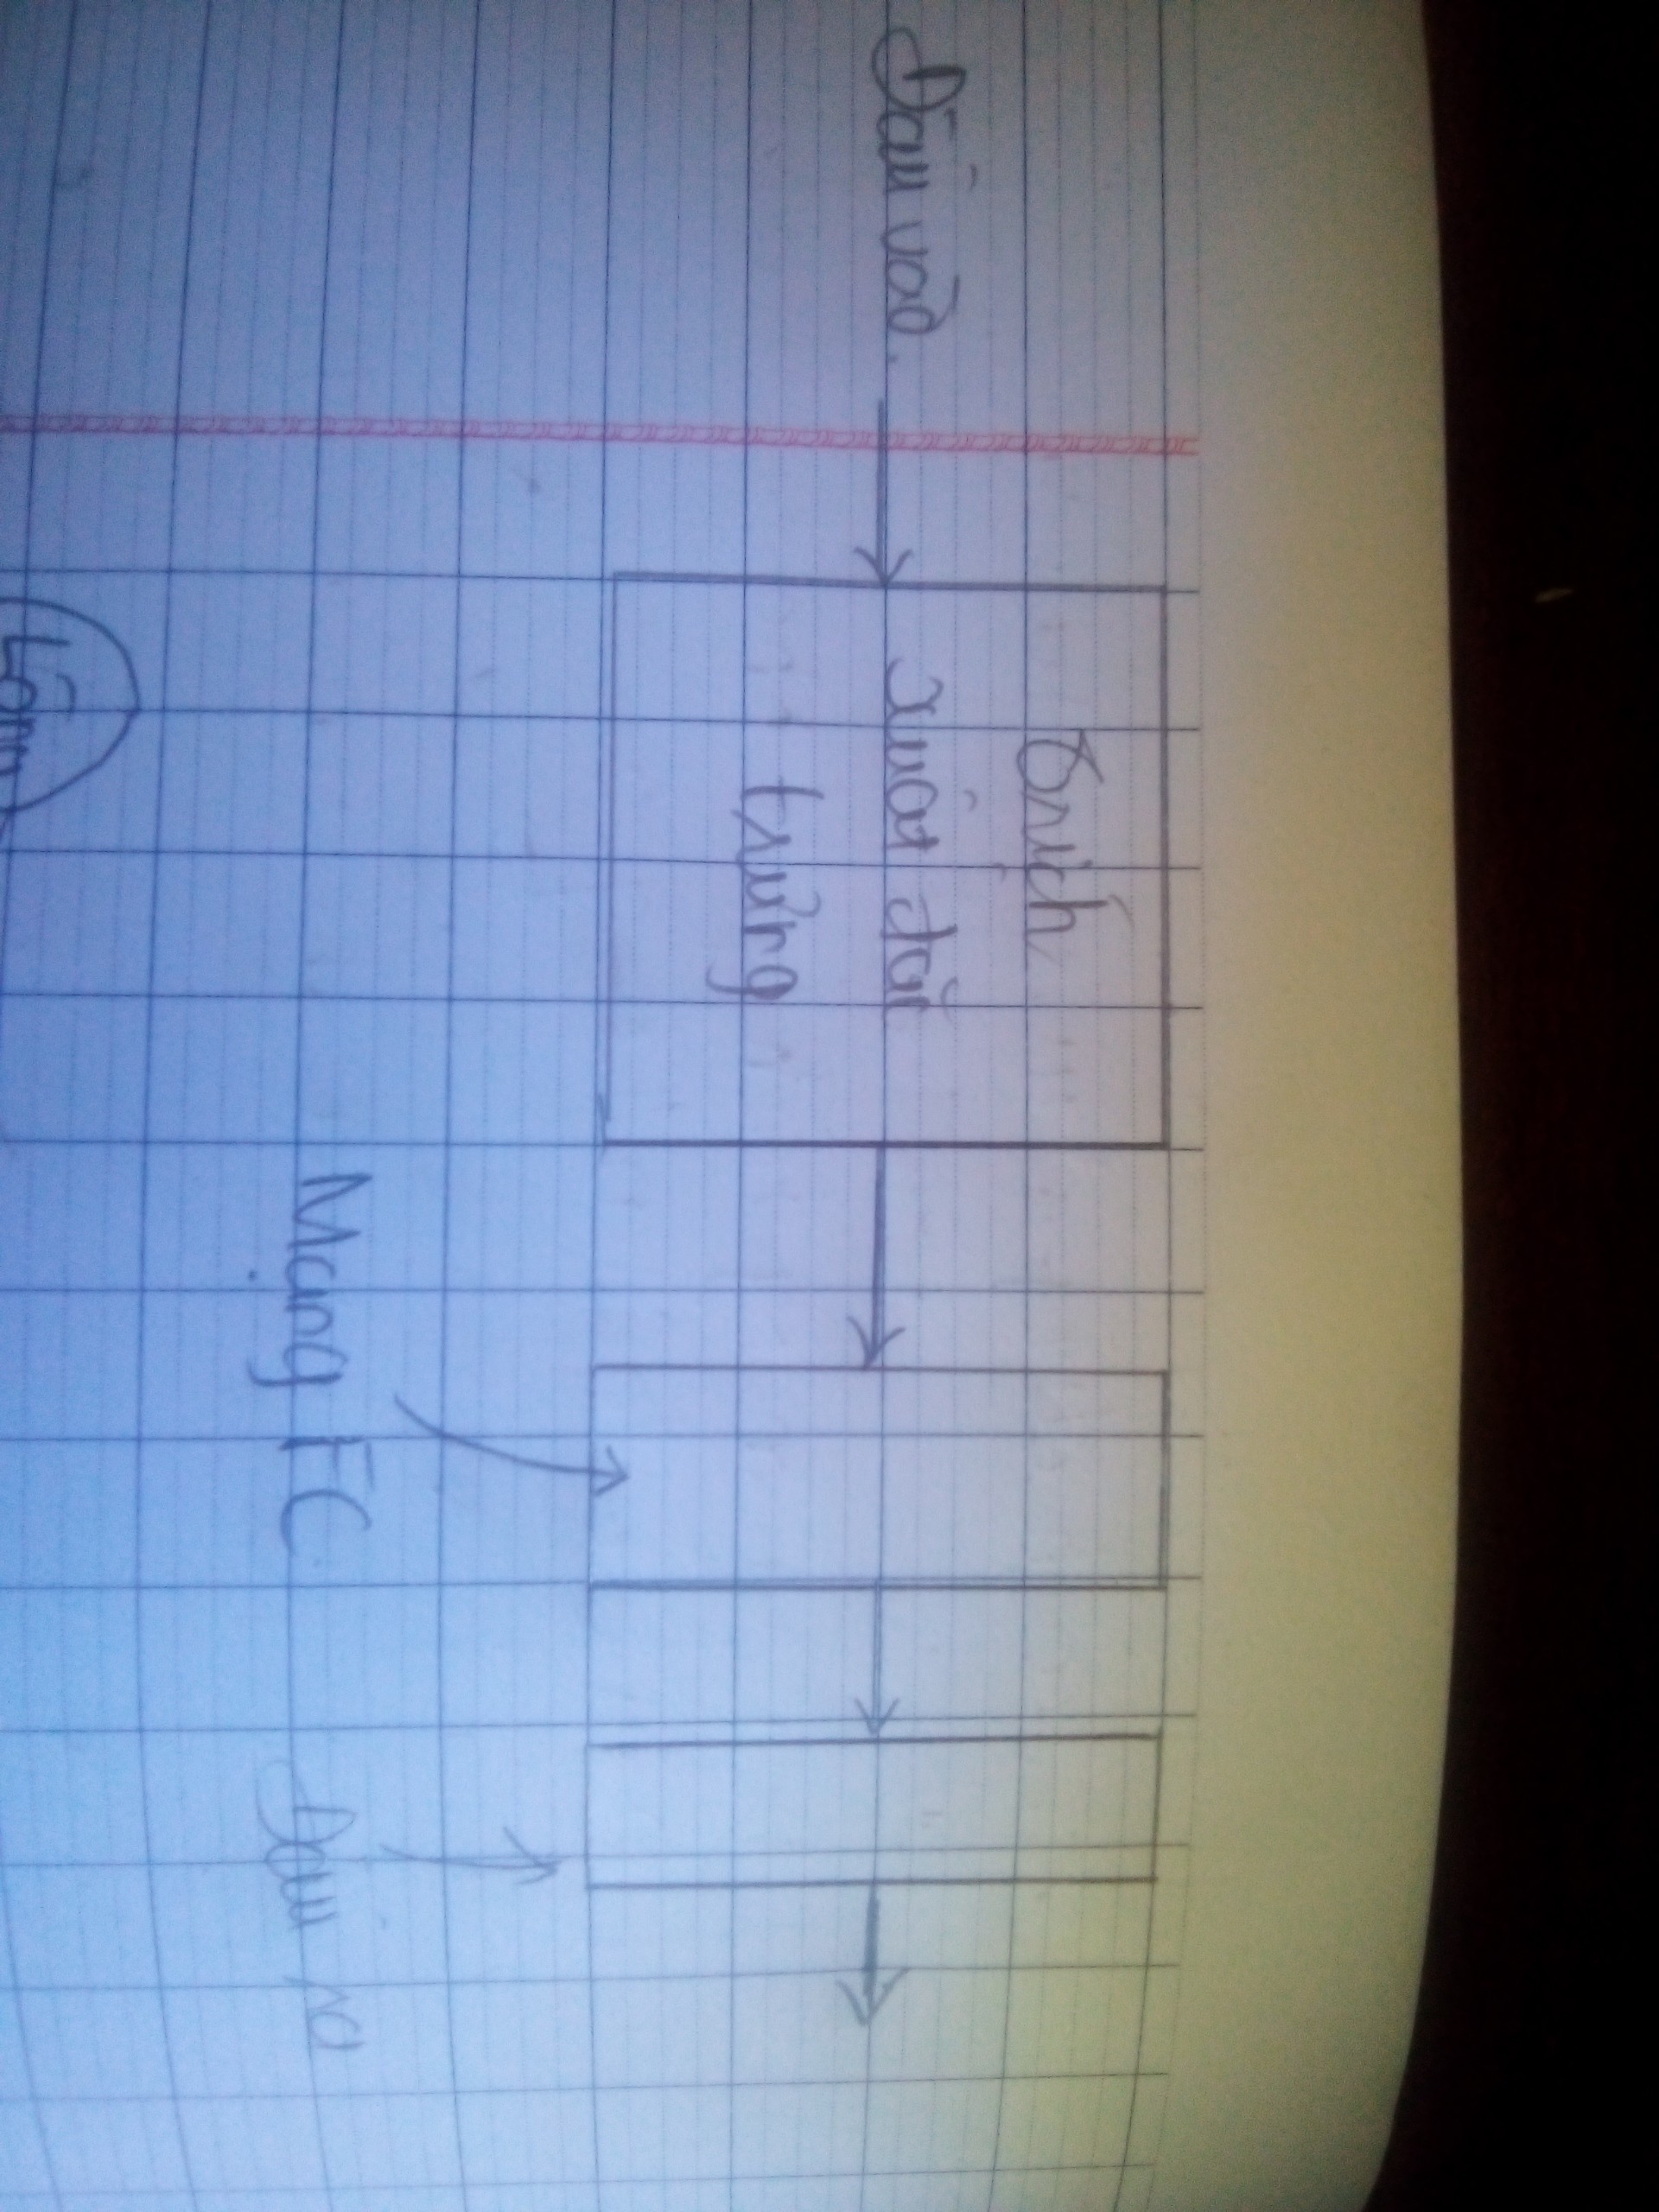 Đầu vào.
Trích
xuất đặc
trưng
Mạng FC
Đầu ra